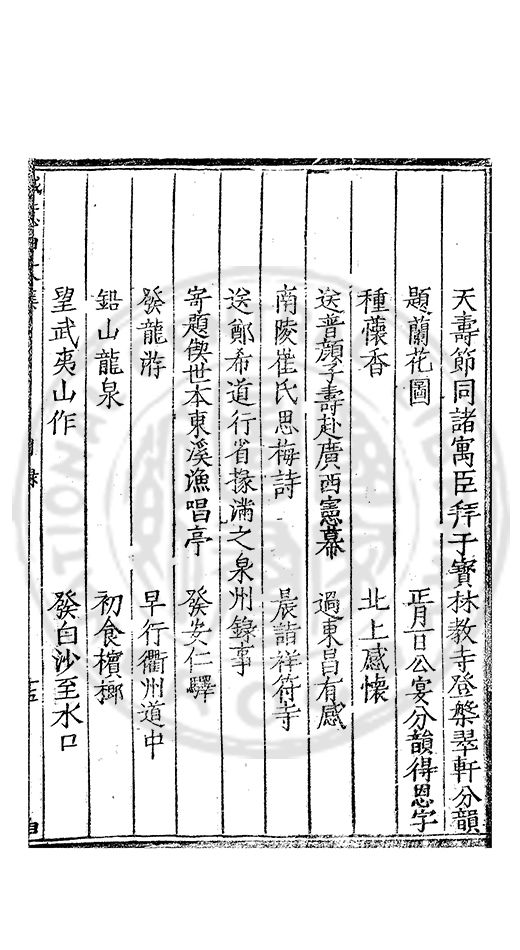 天壽節同諸寓臣拜于寶林教寺登槃翠軒分韻
題蘭花圖　正月一日公宴分韻得恩字
種蘹香　北上感懷
送普顏子壽赴廣西憲幕　過東昌有感
南陵崔氏思梅詩　晨詣祥符寺
送鄭希道行省掾滿之泉州錄事
寄題偰世本東溪漁唱亭　發安仁驛
發龍游　早行衢州道中
鉛山龍泉　初食檳榔
望武夷山作　發白沙至水口